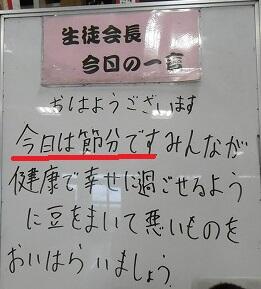 生徒会長
今日の一言
おはようございます
今日は節分ですみんなが
健康で幸せに過ごせるよう
に豆をまいて悪いものを
おいはらいましょう。